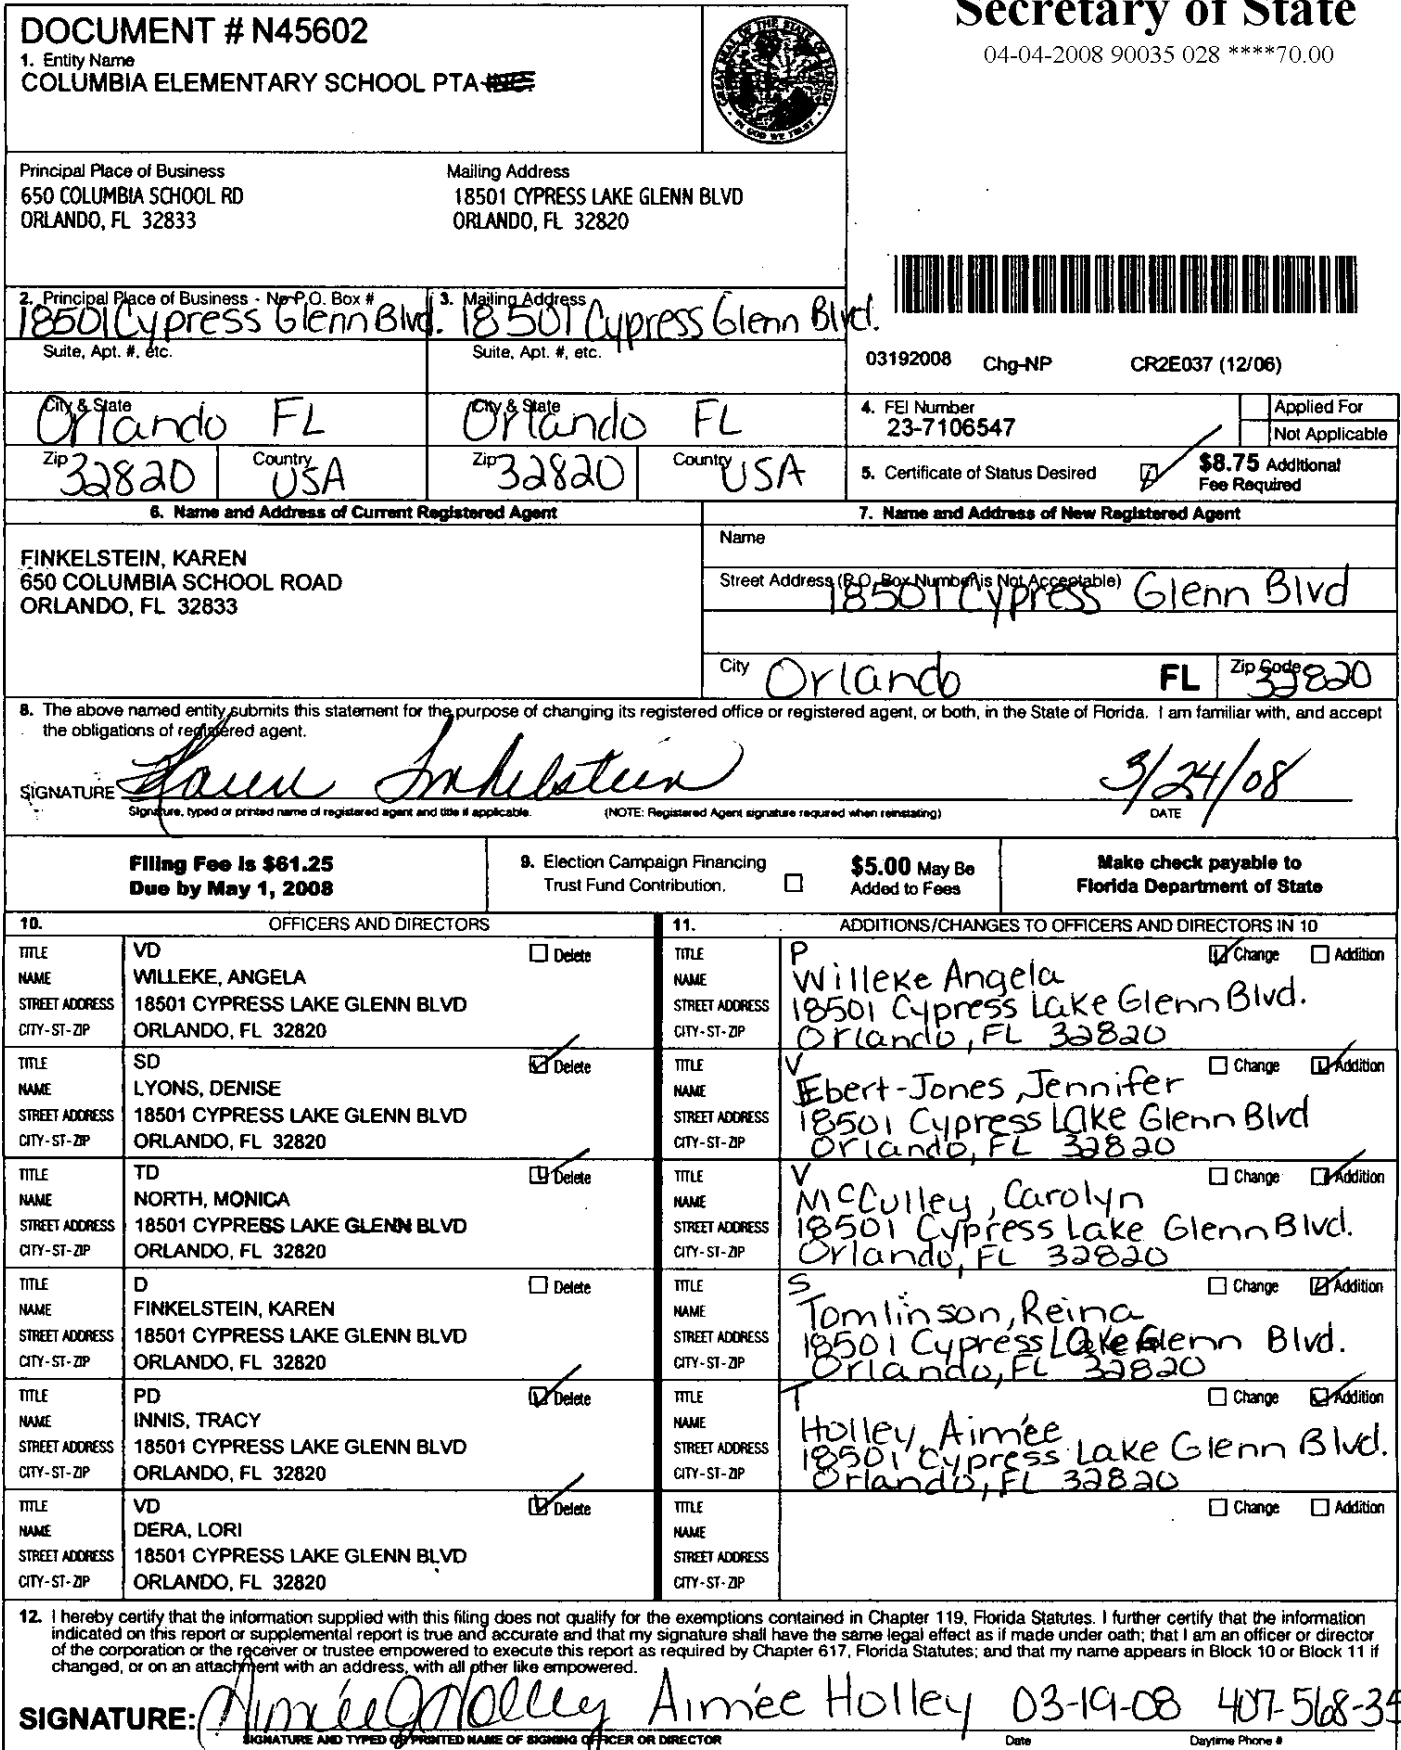 Secretary of State
04-04-2008 90035 028 ****70.00
DOCUMENT # N45602
1. Entity Name
COLUMBIA ELEMENTARY SCHOOL PTA
GREAT SEAL OF THE STATE OF FLORIDA
IN GOD WE TRUST
Principal Place of Business
650 COLUMBIA SCHOOL RD
ORLANDO, FL 32833
Mailing Address
18501 CYPRESS LAKE GLENN BLVD
ORLANDO, FL 32820
2. Principal Place of Business - No P.O. Box #
18501 Cypress Glenn Blvd.
3. Mailing Address
18501 Cypress Glenn Blvd.
Suite, Apt. #, etc.
Suite, Apt. #, etc.
03192008 Chg-NP CR2E037 (12/06)
City & State
Orlando FL
City & State
Orlando FL
4. FEI Number
23-7106547
Applied For
Not Applicable
Zip 32820
Country USA
Zip 32820
Country USA
5. Certificate of Status Desired
$8.75 Additional
Fee Required
6. Name and Address of Current Registered Agent
FINKELSTEIN, KAREN
650 COLUMBIA SCHOOL ROAD
ORLANDO, FL 32833
7. Name and Address of New Registered Agent
Name
Street Address (P.O. Box Number is Not Acceptable)
18501 Cypress Glenn Blvd
City Orlando FL Zip Code 32820
8. The above named entity submits this statement for the purpose of changing its registered office or registered agent, or both, in the State of Florida. I am familiar with, and accept
the obligations of registered agent.
SIGNATURE Karen Finkelstein 3/24/08
Signature, typed or printed name of registered agent and title if applicable. (NOTE: Registered Agent signature required when reinstating) DATE
Filing Fee is $61.25
Due by May 1, 2008
9. Election Campaign Financing
Trust Fund Contribution.
$5.00 May Be
Added to Fees
Make check payable to
Florida Department of State
10. OFFICERS AND DIRECTORS
TITLE VD Delete
NAME WILLEKE, ANGELA
STREET ADDRESS 18501 CYPRESS LAKE GLENN BLVD
CITY-ST-ZIP ORLANDO, FL 32820
TITLE SD Delete
NAME LYONS, DENISE
STREET ADDRESS 18501 CYPRESS LAKE GLENN BLVD
CITY-ST-ZIP ORLANDO, FL 32820
TITLE TD Delete
NAME NORTH, MONICA
STREET ADDRESS 18501 CYPRESS LAKE GLENN BLVD
CITY-ST-ZIP ORLANDO, FL 32820
TITLE D Delete
NAME FINKELSTEIN, KAREN
STREET ADDRESS 18501 CYPRESS LAKE GLENN BLVD
CITY-ST-ZIP ORLANDO, FL 32820
TITLE PD Delete
NAME INNIS, TRACY
STREET ADDRESS 18501 CYPRESS LAKE GLENN BLVD
CITY-ST-ZIP ORLANDO, FL 32820
TITLE VD Delete
NAME DERA, LORI
STREET ADDRESS 18501 CYPRESS LAKE GLENN BLVD
CITY-ST-ZIP ORLANDO, FL 32820
11. ADDITIONS/CHANGES TO OFFICERS AND DIRECTORS IN 10
TITLE P Change Addition
NAME Willeke Angela
STREET ADDRESS 18501 Cypress Lake Glenn Blvd.
CITY-ST-ZIP Orlando, FL 32820
TITLE V Change Addition
NAME Ebert-Jones, Jennifer
STREET ADDRESS 18501 Cypress Lake Glenn Blvd
CITY-ST-ZIP Orlando, FL 32820
TITLE V Change Addition
NAME McCulley, Carolyn
STREET ADDRESS 18501 Cypress Lake Glenn Blvd.
CITY-ST-ZIP Orlando, FL 32820
TITLE S Change Addition
NAME Tomlinson, Reina
STREET ADDRESS 18501 Cypress Lake Glenn Blvd.
CITY-ST-ZIP Orlando, FL 32820
TITLE T Change Addition
NAME Holley, Aimée
STREET ADDRESS 18501 Cypress Lake Glenn Blvd.
CITY-ST-ZIP Orlando, FL 32820
TITLE Change Addition
NAME
STREET ADDRESS
CITY-ST-ZIP
12. I hereby certify that the information supplied with this filing does not qualify for the exemptions contained in Chapter 119, Florida Statutes. I further certify that the information
indicated on this report or supplemental report is true and accurate and that my signature shall have the same legal effect as if made under oath; that I am an officer or director
of the corporation or the receiver or trustee empowered to execute this report as required by Chapter 617, Florida Statutes; and that my name appears in Block 10 or Block 11 if
changed, or on an attachment with an address, with all other like empowered.
SIGNATURE: Aimée J Holley Aimée Holley 03-19-08 407-568-35
SIGNATURE AND TYPED OR PRINTED NAME OF SIGNING OFFICER OR DIRECTOR Date Daytime Phone #